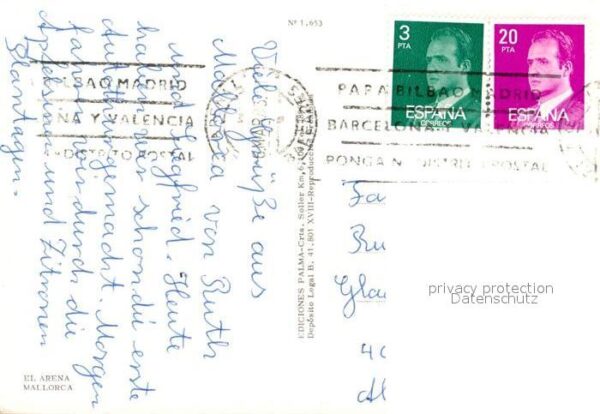 Nº 1.653
3
PTA
ESPAÑA
CORREOS
20
PTA
ESPAÑA
CORREOS
BILBAO MADRID
NA Y VALENCIA
DISTRITO POSTAL
PARA BILBAO MADRID
BARCELONA Y VALENCIA
PONGA N. DISTRITO POSTAL
Viele Grüße aus
Mallorca von Ruth
und Siegfried. Heute
haben wir schon die erste
Autotour gemacht. Morgen
fahren wir durch die
Apfelsinen und Zitronen
Plantagen.
EDICIONES PALMA-Crta. Soller Km.
Depósito Legal B. 41.801 XVIII-Reproducción
Fa
Ru
Gla
40
privacy protection
Datenschutz
EL ARENA
MALLORCA